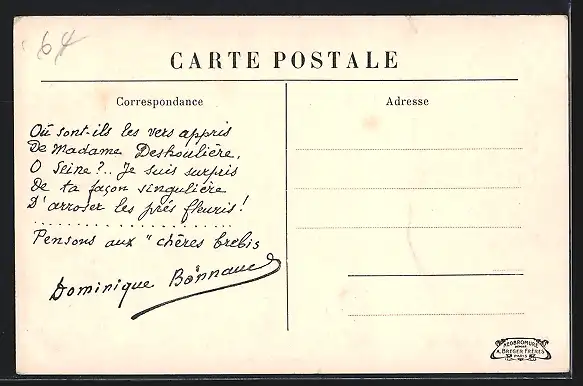 64
CARTE POSTALE
Correspondance
Adresse
Où sont-ils les vers appris
De Madame Deshoulière,
O Seine?.. Je suis surpris
De ta façon singulière
D'arroser les prés fleuris!
Pensons aux "chères brebis
Dominique Bonnaud
NEOBROMURE
A. BREGER FRÈRES
PARIS